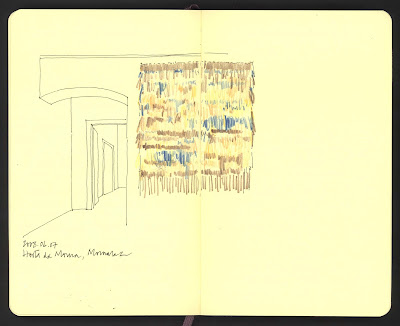 2008.06.07
Horta da Moura, Monsaraz